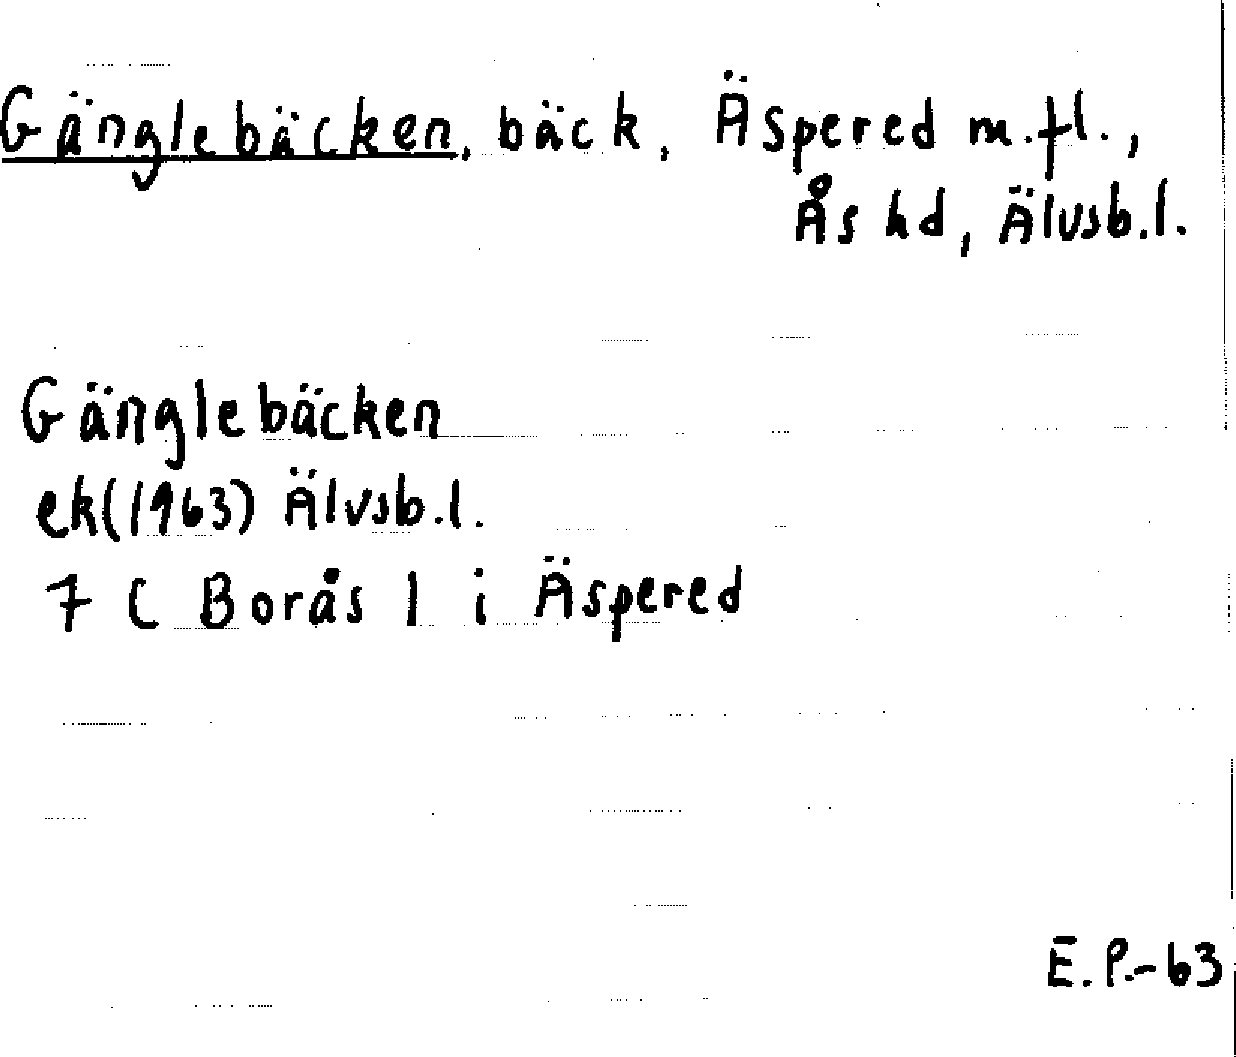 Gänglebäcken, bäck, Äspered m.fl.,
Ås hd, Älvsb.l.
Gänglebäcken
ek(1963) Älvsb.l.
7 C Borås 1 i Äspered
E.P.-63